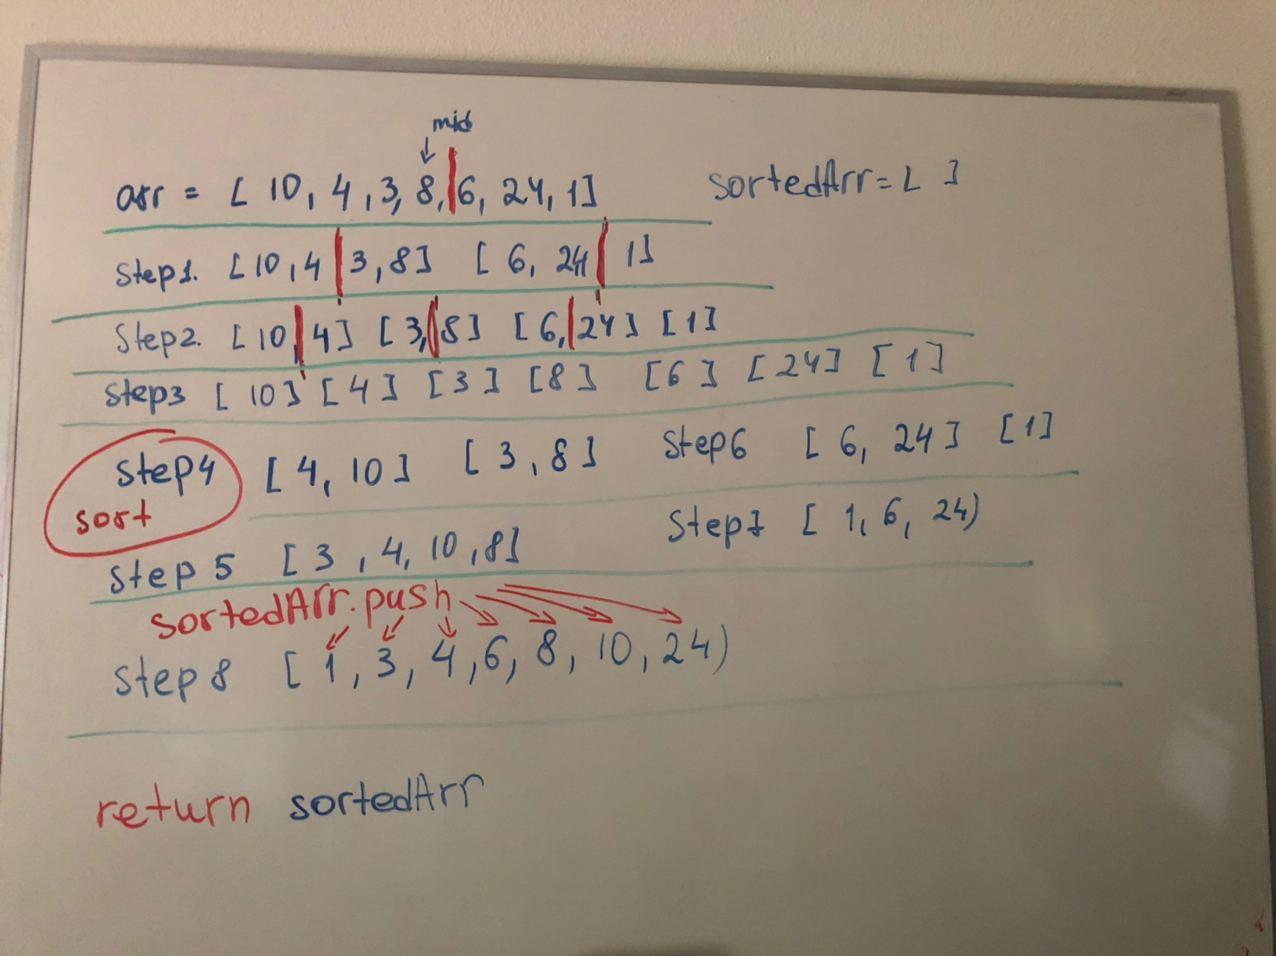 mid
arr = [ 10, 4, 3, 8, 6, 24, 1] sortedArr = [ ]
Step1. [10, 4 3, 8] [ 6, 24 1]
Step2. [10, 4] [3, 8] [6, 24] [1]
Step3 [ 10] [4] [3] [8] [6] [24] [1]
Step4 [4, 10] [3, 8] Step6 [6, 24] [1]
sort
Step 5 [3, 4, 10, 8] Step7 [ 1, 6, 24)
sortedArr.push
Step 8 [ 1, 3, 4, 6, 8, 10, 24)
return sortedArr